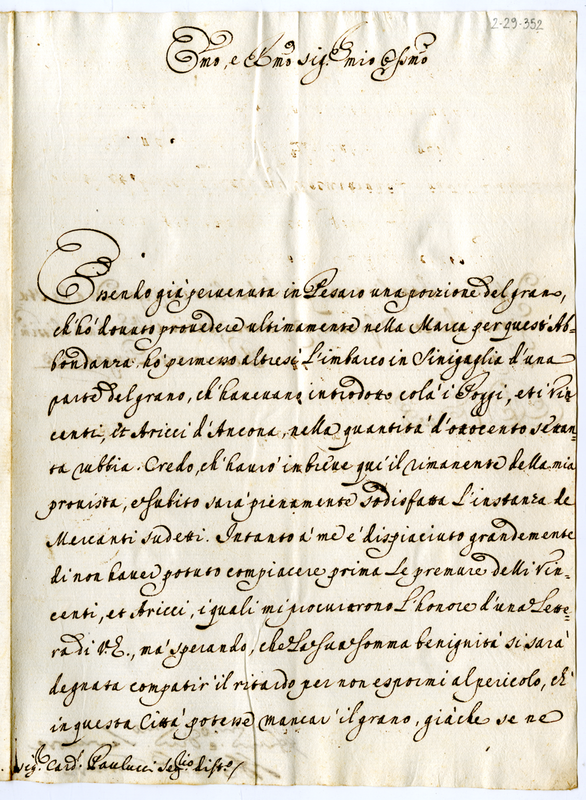 2-29-352
Emo, e Rmo sig.r mio Ossmo
Essendo già pervenuta in Pesaro una porzione del grano,
ch'hò dovuto provedere ultimamente nella Marca per quest'Ab-
bondanza, hò permesso altresì l'imbarco in Sinigaglia d'una
parte del grano, ch'havevano introdotto colà i Pozzi, et i Vin-
centi, et Aricci d'Ancona, nella quantità d'ottocento settan-
ta rubbia. Credo, ch'havrò in breve quì il rimanente della mia
provista, e subito sarà pienamente sodisfatta l'instanza de
Mercanti sudetti. Intanto à me è dispiaciuto grandemente
di non haver potuto compiacere prima le premure delli Vin-
centi, et Aricci, i quali mi procurorono l'honore d'una Lette-
ra di V.E., mà sperando, che la sua somma benignità si sarà
degnata compatir il ritardo per non espormi al pericolo, ch'
in questa Città potesse mancar il grano, giàche se ne
sig.r Card. Paulucci Seg.rio di Sto